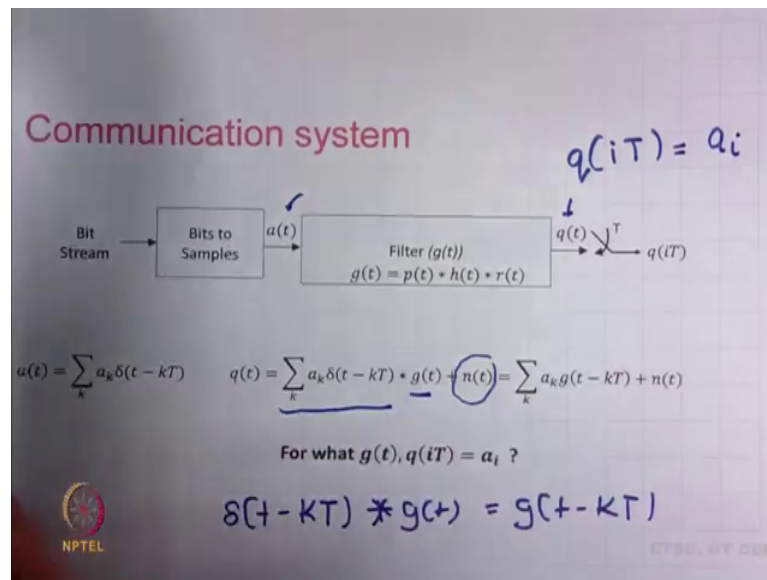 Communication system
q(iT) = aᵢ
Bit Stream
Bits to Samples
a(t)
Filter (g(t))
g(t) = p(t) * h(t) * r(t)
q(t)
T
q(iT)
a(t) = ∑ₖ aₖδ(t − kT)
q(t) = ∑ₖ aₖδ(t − kT) * g(t) + n(t) = ∑ₖ aₖg(t − kT) + n(t)
For what g(t), q(iT) = aᵢ ?
δ(t - KT) * g(t) = g(t - KT)
NPTEL